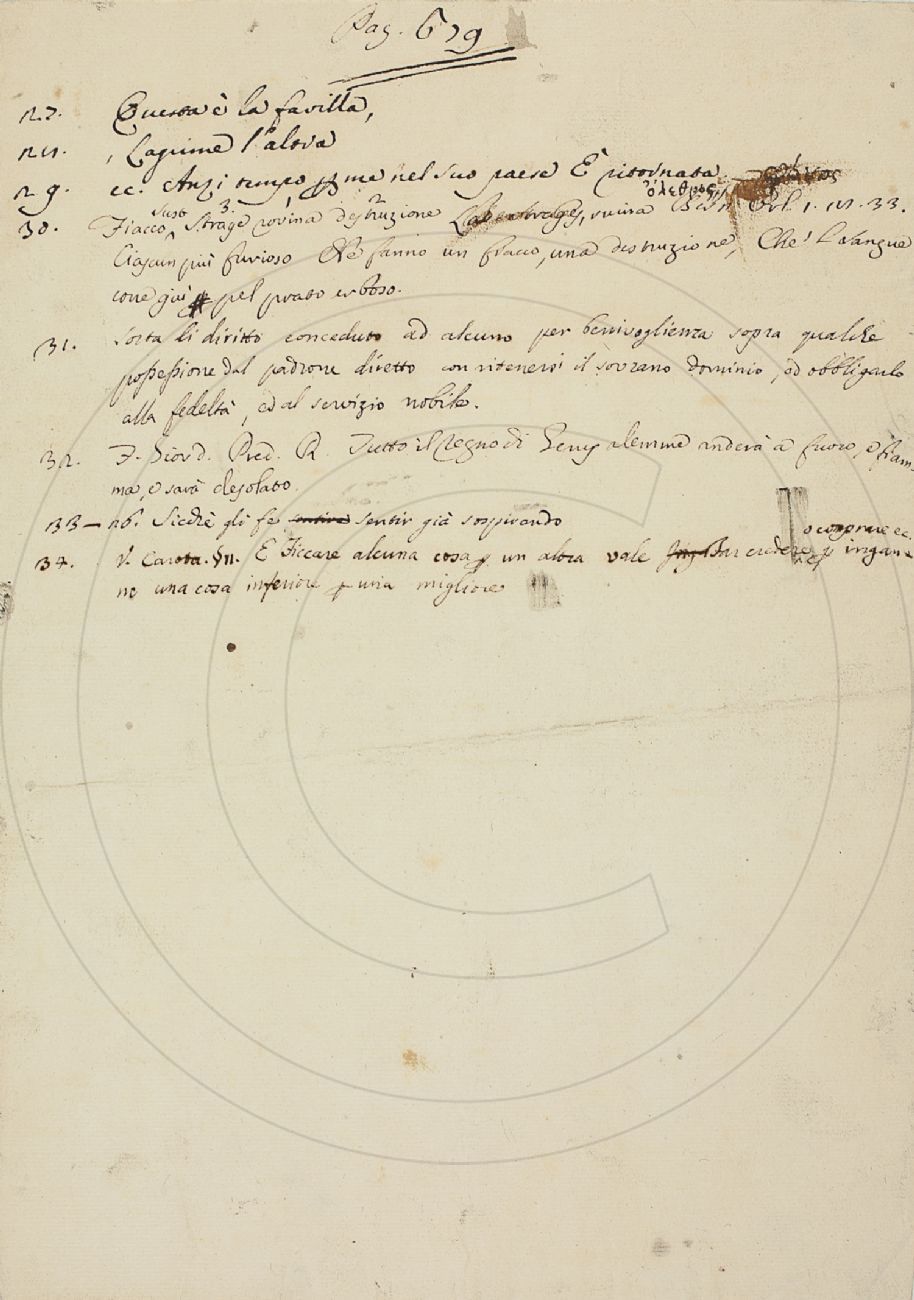 Pag. 629
27. Questa è la favilla,
28. , Lagrime l'altra
29. ec. Anzi tempo p me nel suo paese È ritornata
ὄλεθρος
30. Fiacco, susο Strage 3. rovina destruzione 2 strages, ruina Orl. 1. 33.
Ciascun più furioso Che fanno un fiacco, una destruzione, Che 'l sangue
corre giù pel prato erboso.
31. Sorta di diritto conceduto ad alcuno per benivoglienza sopra qualche
possessione dal padrone diretto con ritenersi il sovrano dominio, ed obbligarlo
alla fedeltà, ed al servizio nobile.
32. F. Giord. Pred. R. Tutto il Regno di Jerusalemme anderà a fuoco, e fiam-
ma, e sarà desolato.
33 – nb. Sicchè gli fe sentire sentir già sospirando
o comprare ec.
34. V. Carota. §II. E Ficcare alcuna cosa p un altra vale Far credere p ingan-
no una cosa inferiore p una migliore